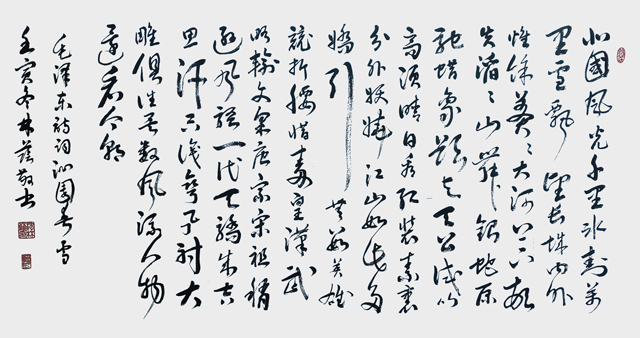 北國風光千里冰封萬
里雪飄望長城內外
惟餘莽〻大河上下頓
失滔〻山舞銀蛇原
馳蠟象欲與天公試比
高須晴日看紅裝素裹
分外妖嬈江山如此多
嬌引無數英雄
競折腰惜秦皇漢武
略輸文采唐宗宋祖稍
遜風騷一代天驕成吉
思汗只識彎弓射大
雕俱往矣數風流人物
還看今朝
毛澤东詩詞沁園春雪
壬寅冬林敬书